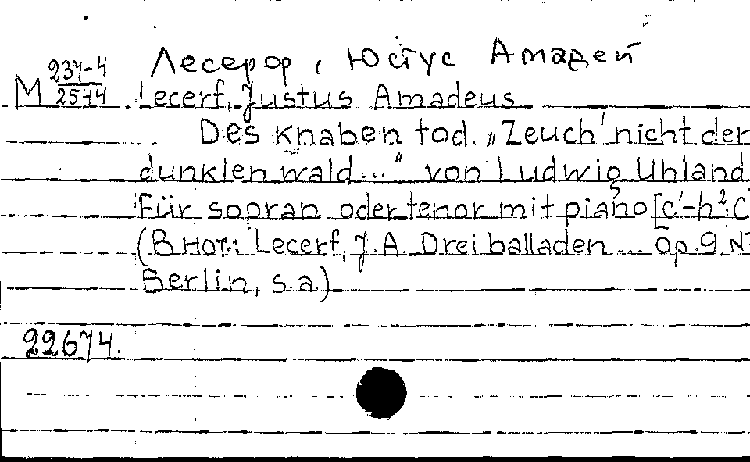 Лесерф, Юстус Амадей
М 237-4
2574
Lecerf, Justus Amadeus
Des Knaben tod. „Zeuch' nicht der
dunklen wald..." von Ludwig Uhland
Für sopran oder tenor mit piano [c'-h²; C
(В нот.: Lecerf, J. A. Drei balladen... Op. 9. N
Berlin, s.a.)
22674.